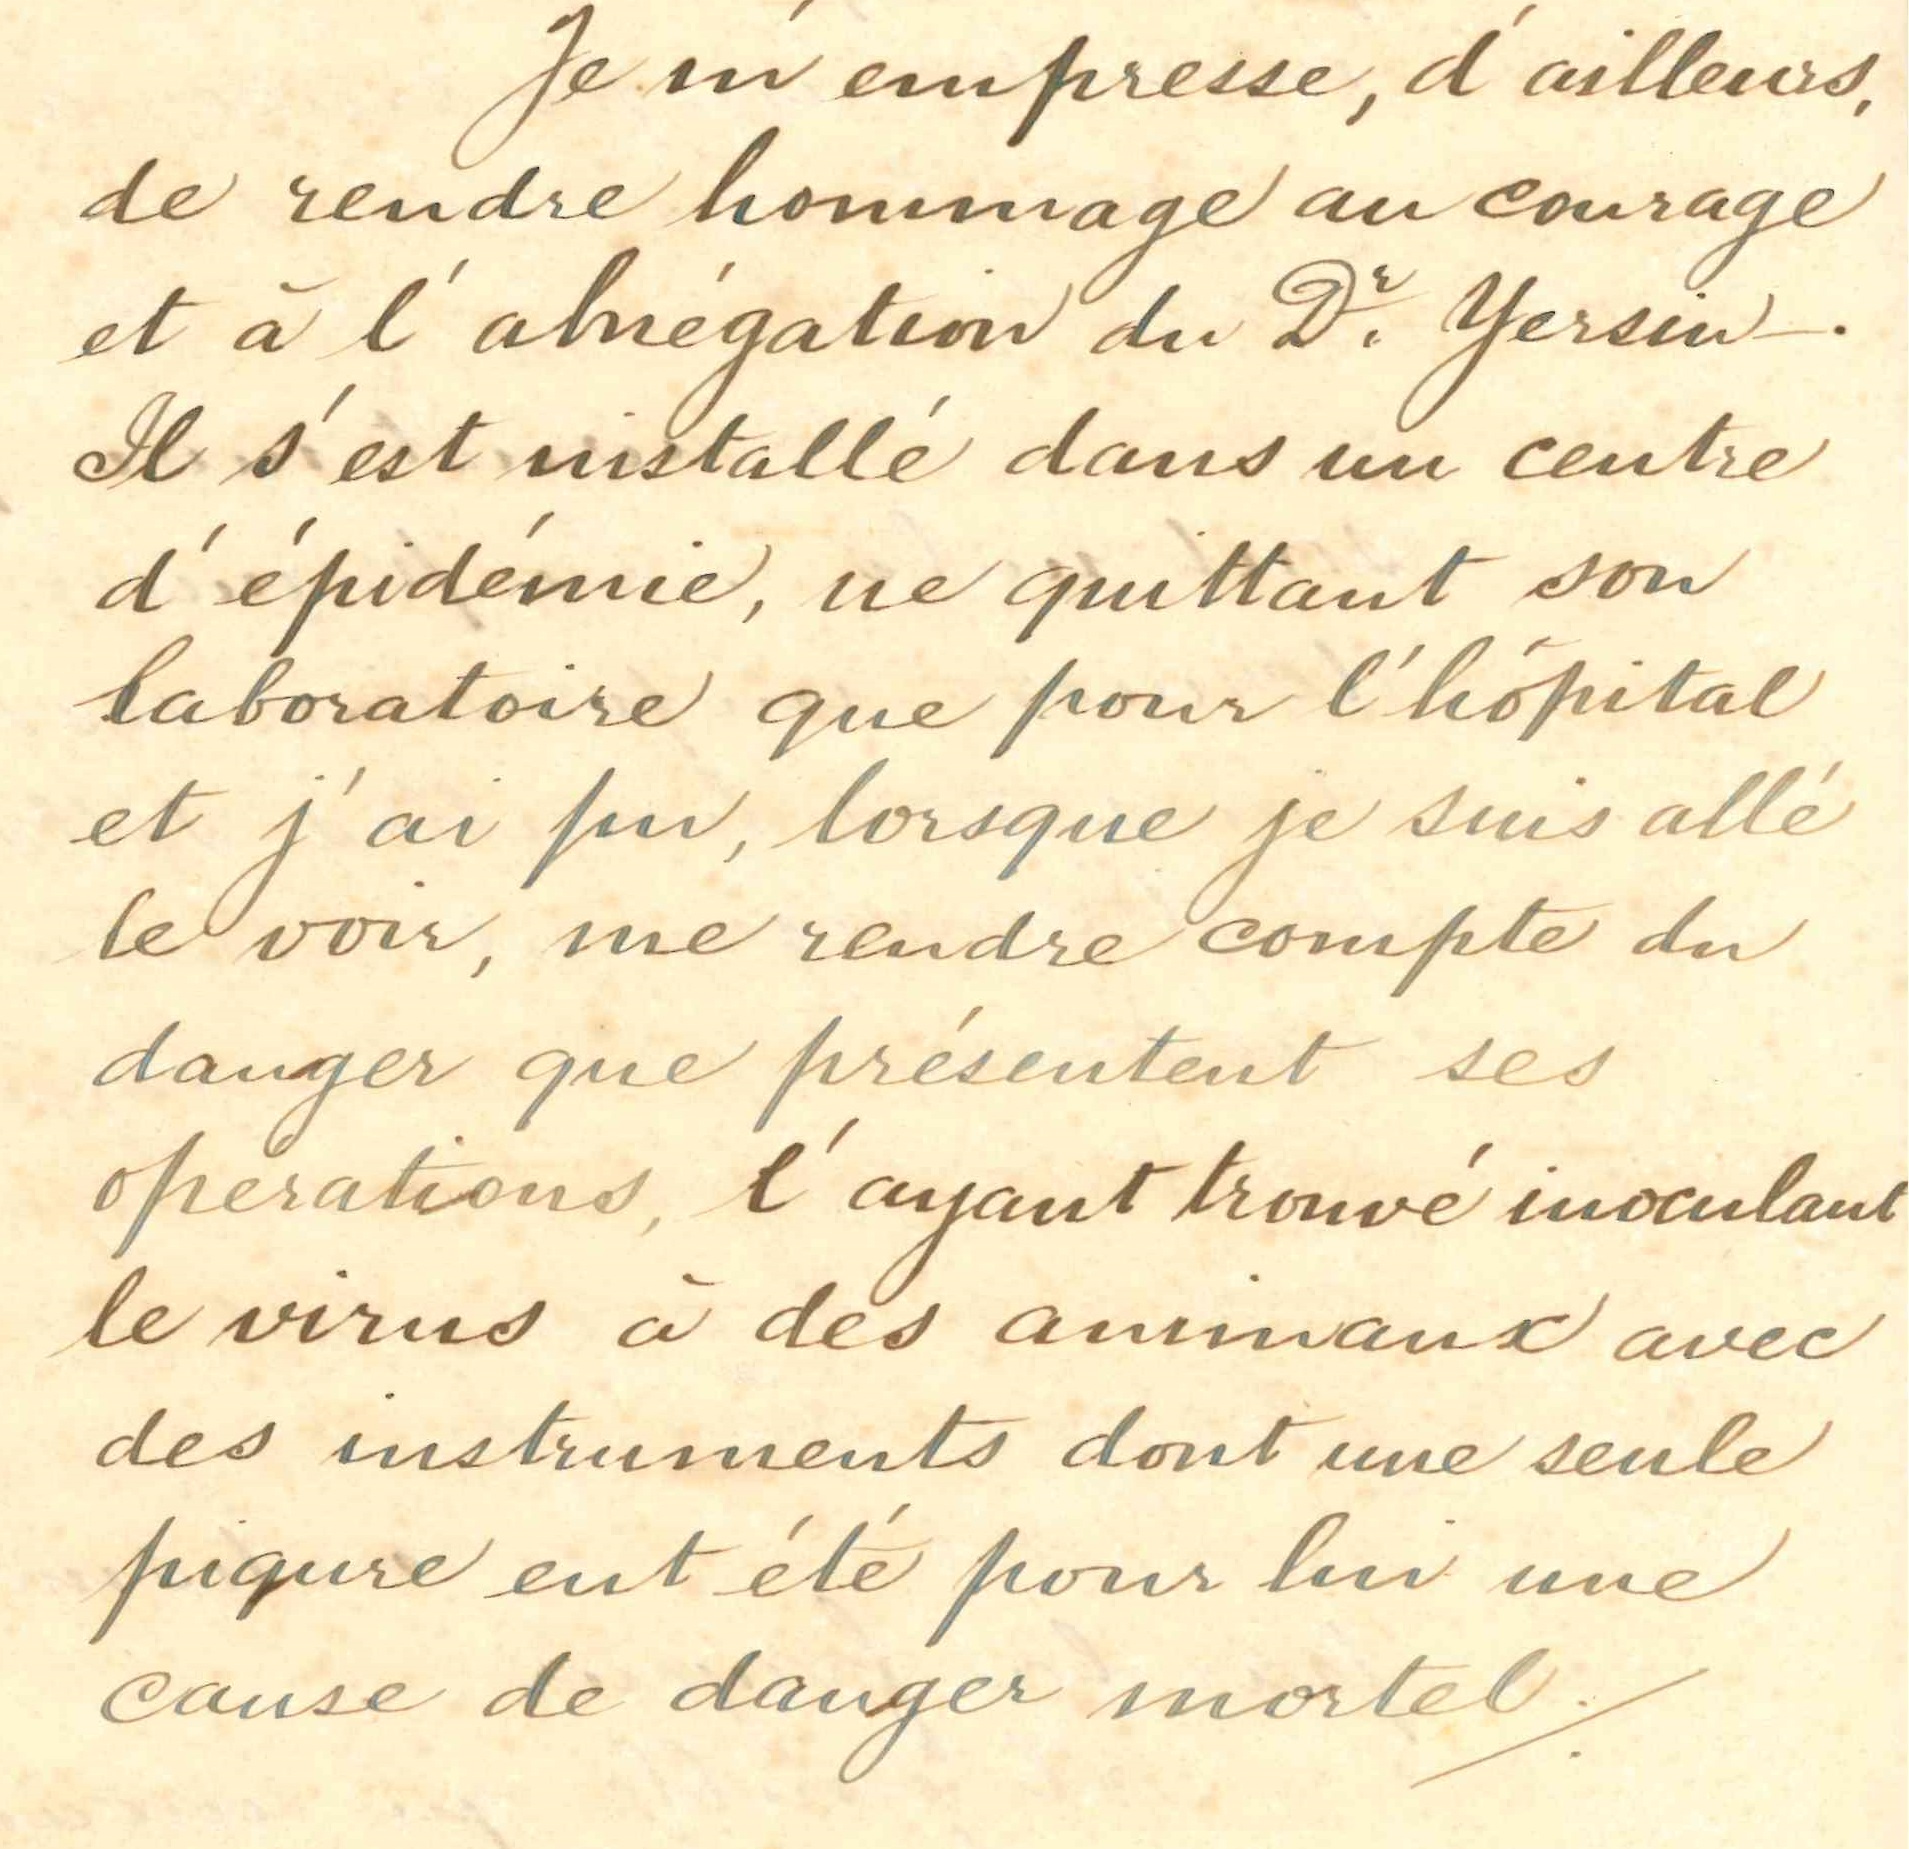 Je m'empresse, d'ailleurs,
de rendre hommage au courage
et à l'abnégation du Dr. Yersin.
Il s'est installé dans un centre
d'épidémie, ne quittant son
laboratoire que pour l'hôpital
et j'ai pu, lorsque je suis allé
le voir, me rendre compte du
danger que présentent ses
operations, l'ayant trouvé inoculant
le virus à des animaux avec
des instruments dont une seule
piqure eut été pour lui une
cause de danger mortel ./.